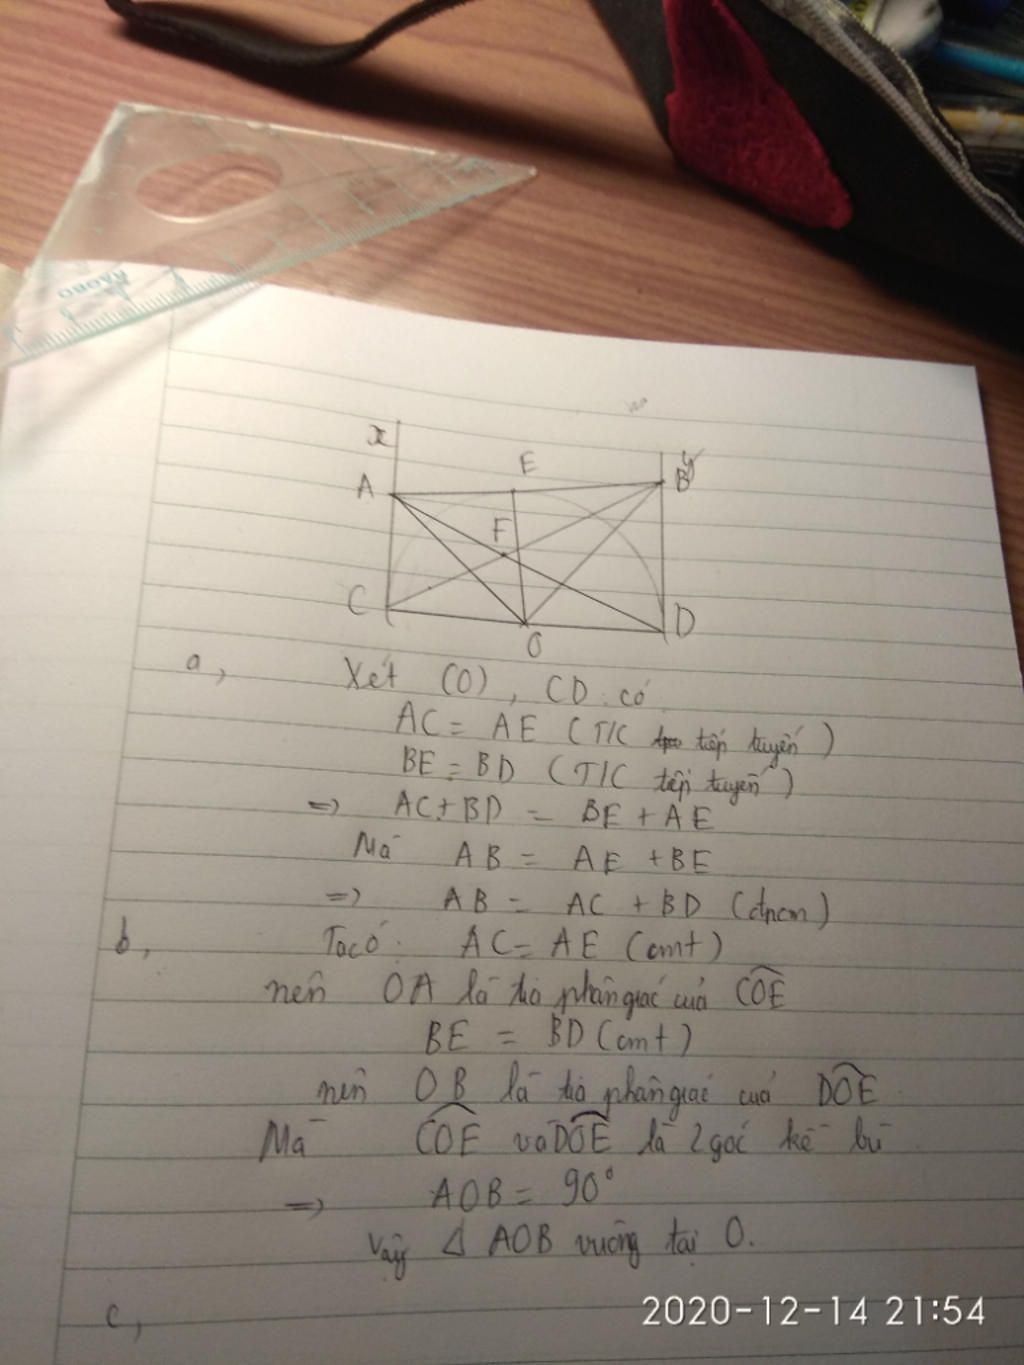 x
E
y
A
B
F
C
D
O
a, Xét (O), CD có
AC = AE (T/C tiếp tuyến)
BE = BD (T/C tiếp tuyến)
=> AC + BD = BE + AE
Mà AB = AE + BE
=> AB = AC + BD (đpcm)
b, Ta có: AC = AE (cmt)
nên OA là tia phân giác của COE
BE = BD (cmt)
nên OB là tia phân giác của DOE
Mà COE và DOE là 2 góc kề bù
=> AOB = 90°
Vậy Δ AOB vuông tại O.
c,
2020-12-14 21:54